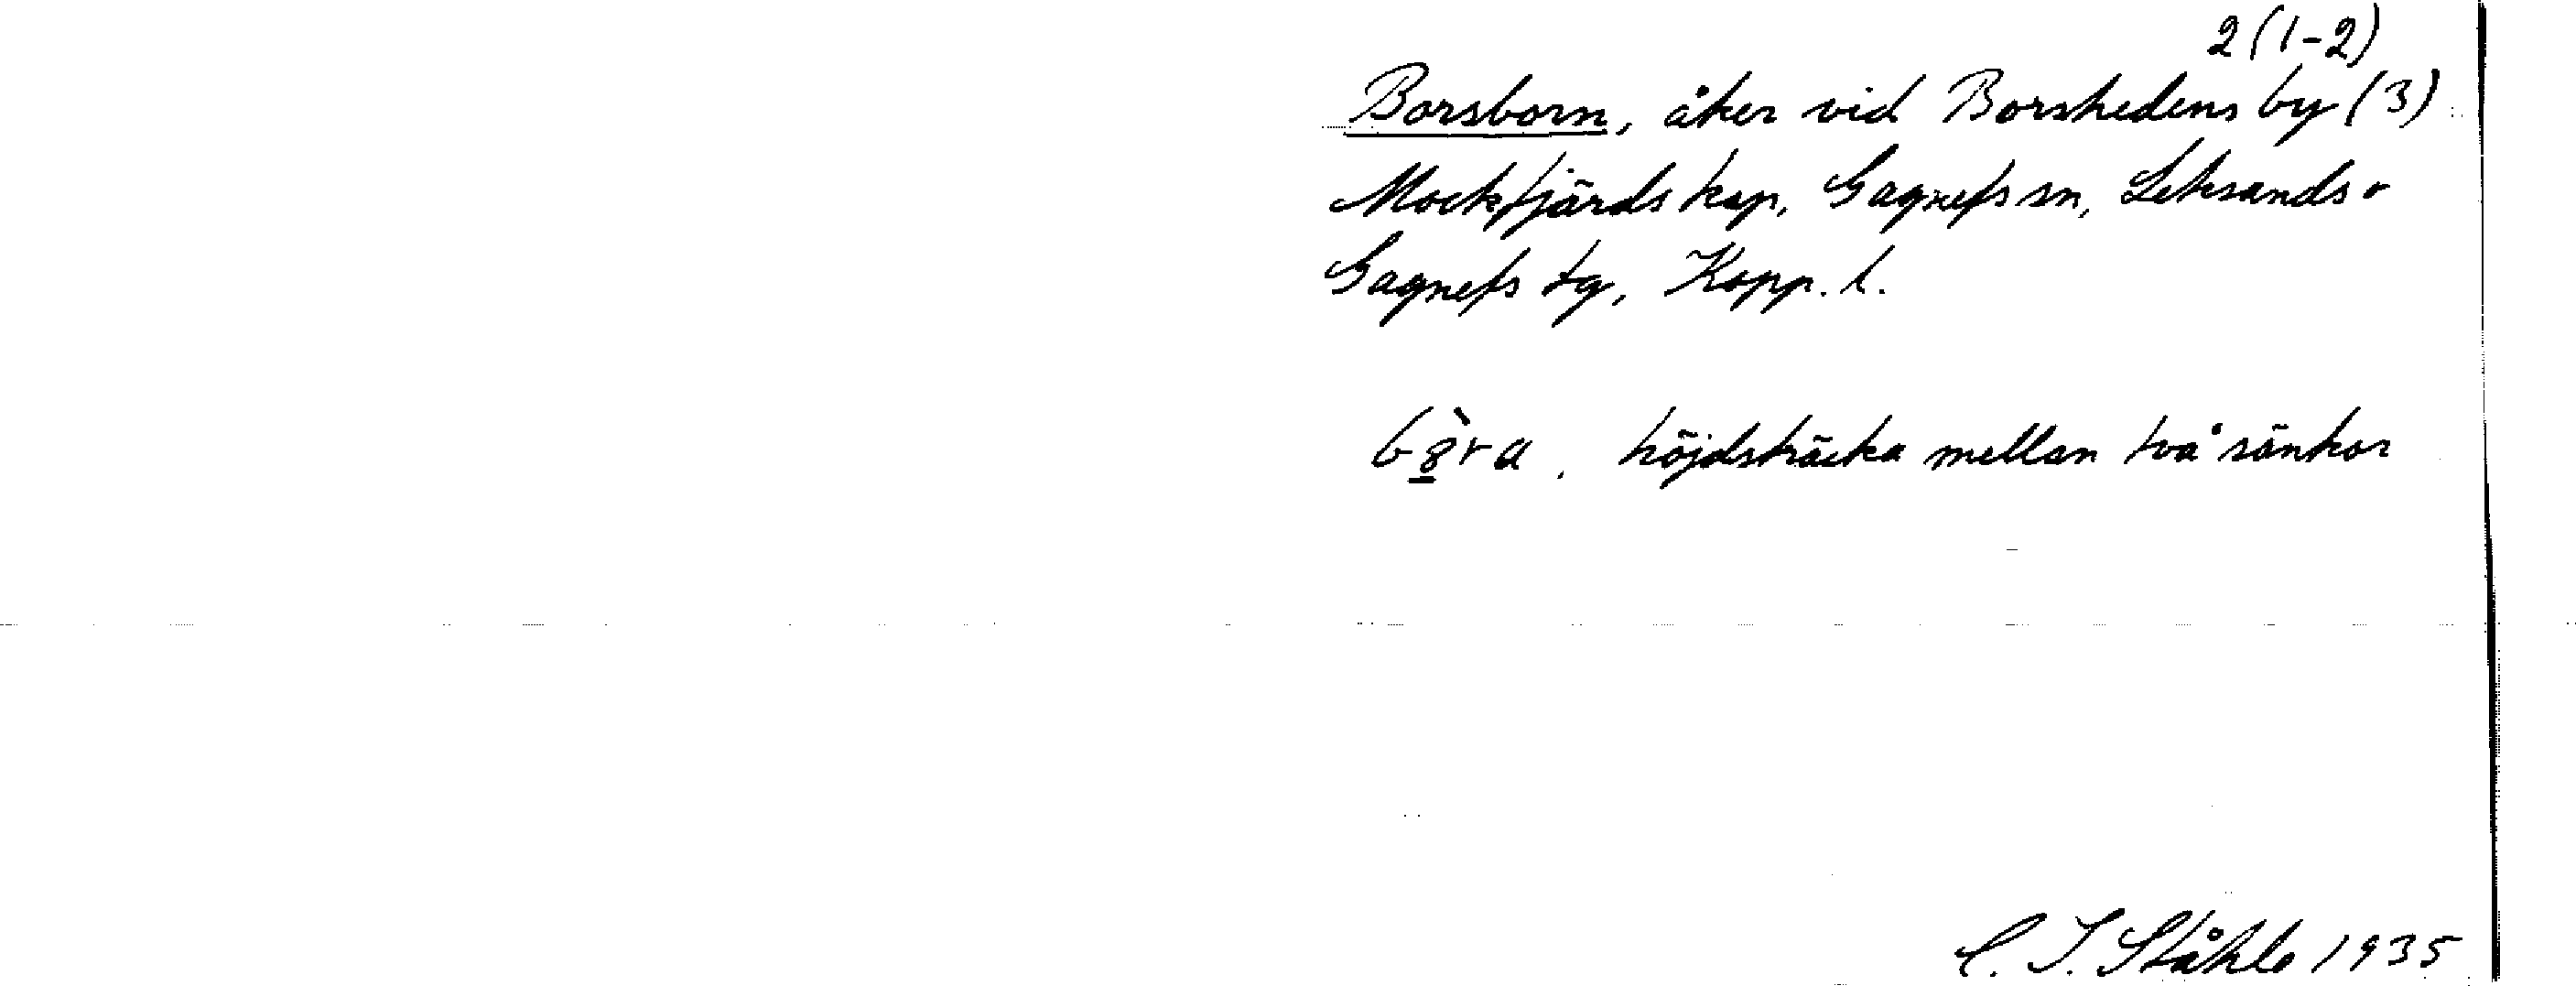 2 (1-2)
Borsborn, åker vid Borshedens by (3)
Mockfjärds kap, Gagnefs sn, Leksands o
Gagnefs tg, Kopp. l.
höjdsträcka mellan två sänkor
C. I. Ståhle 1935